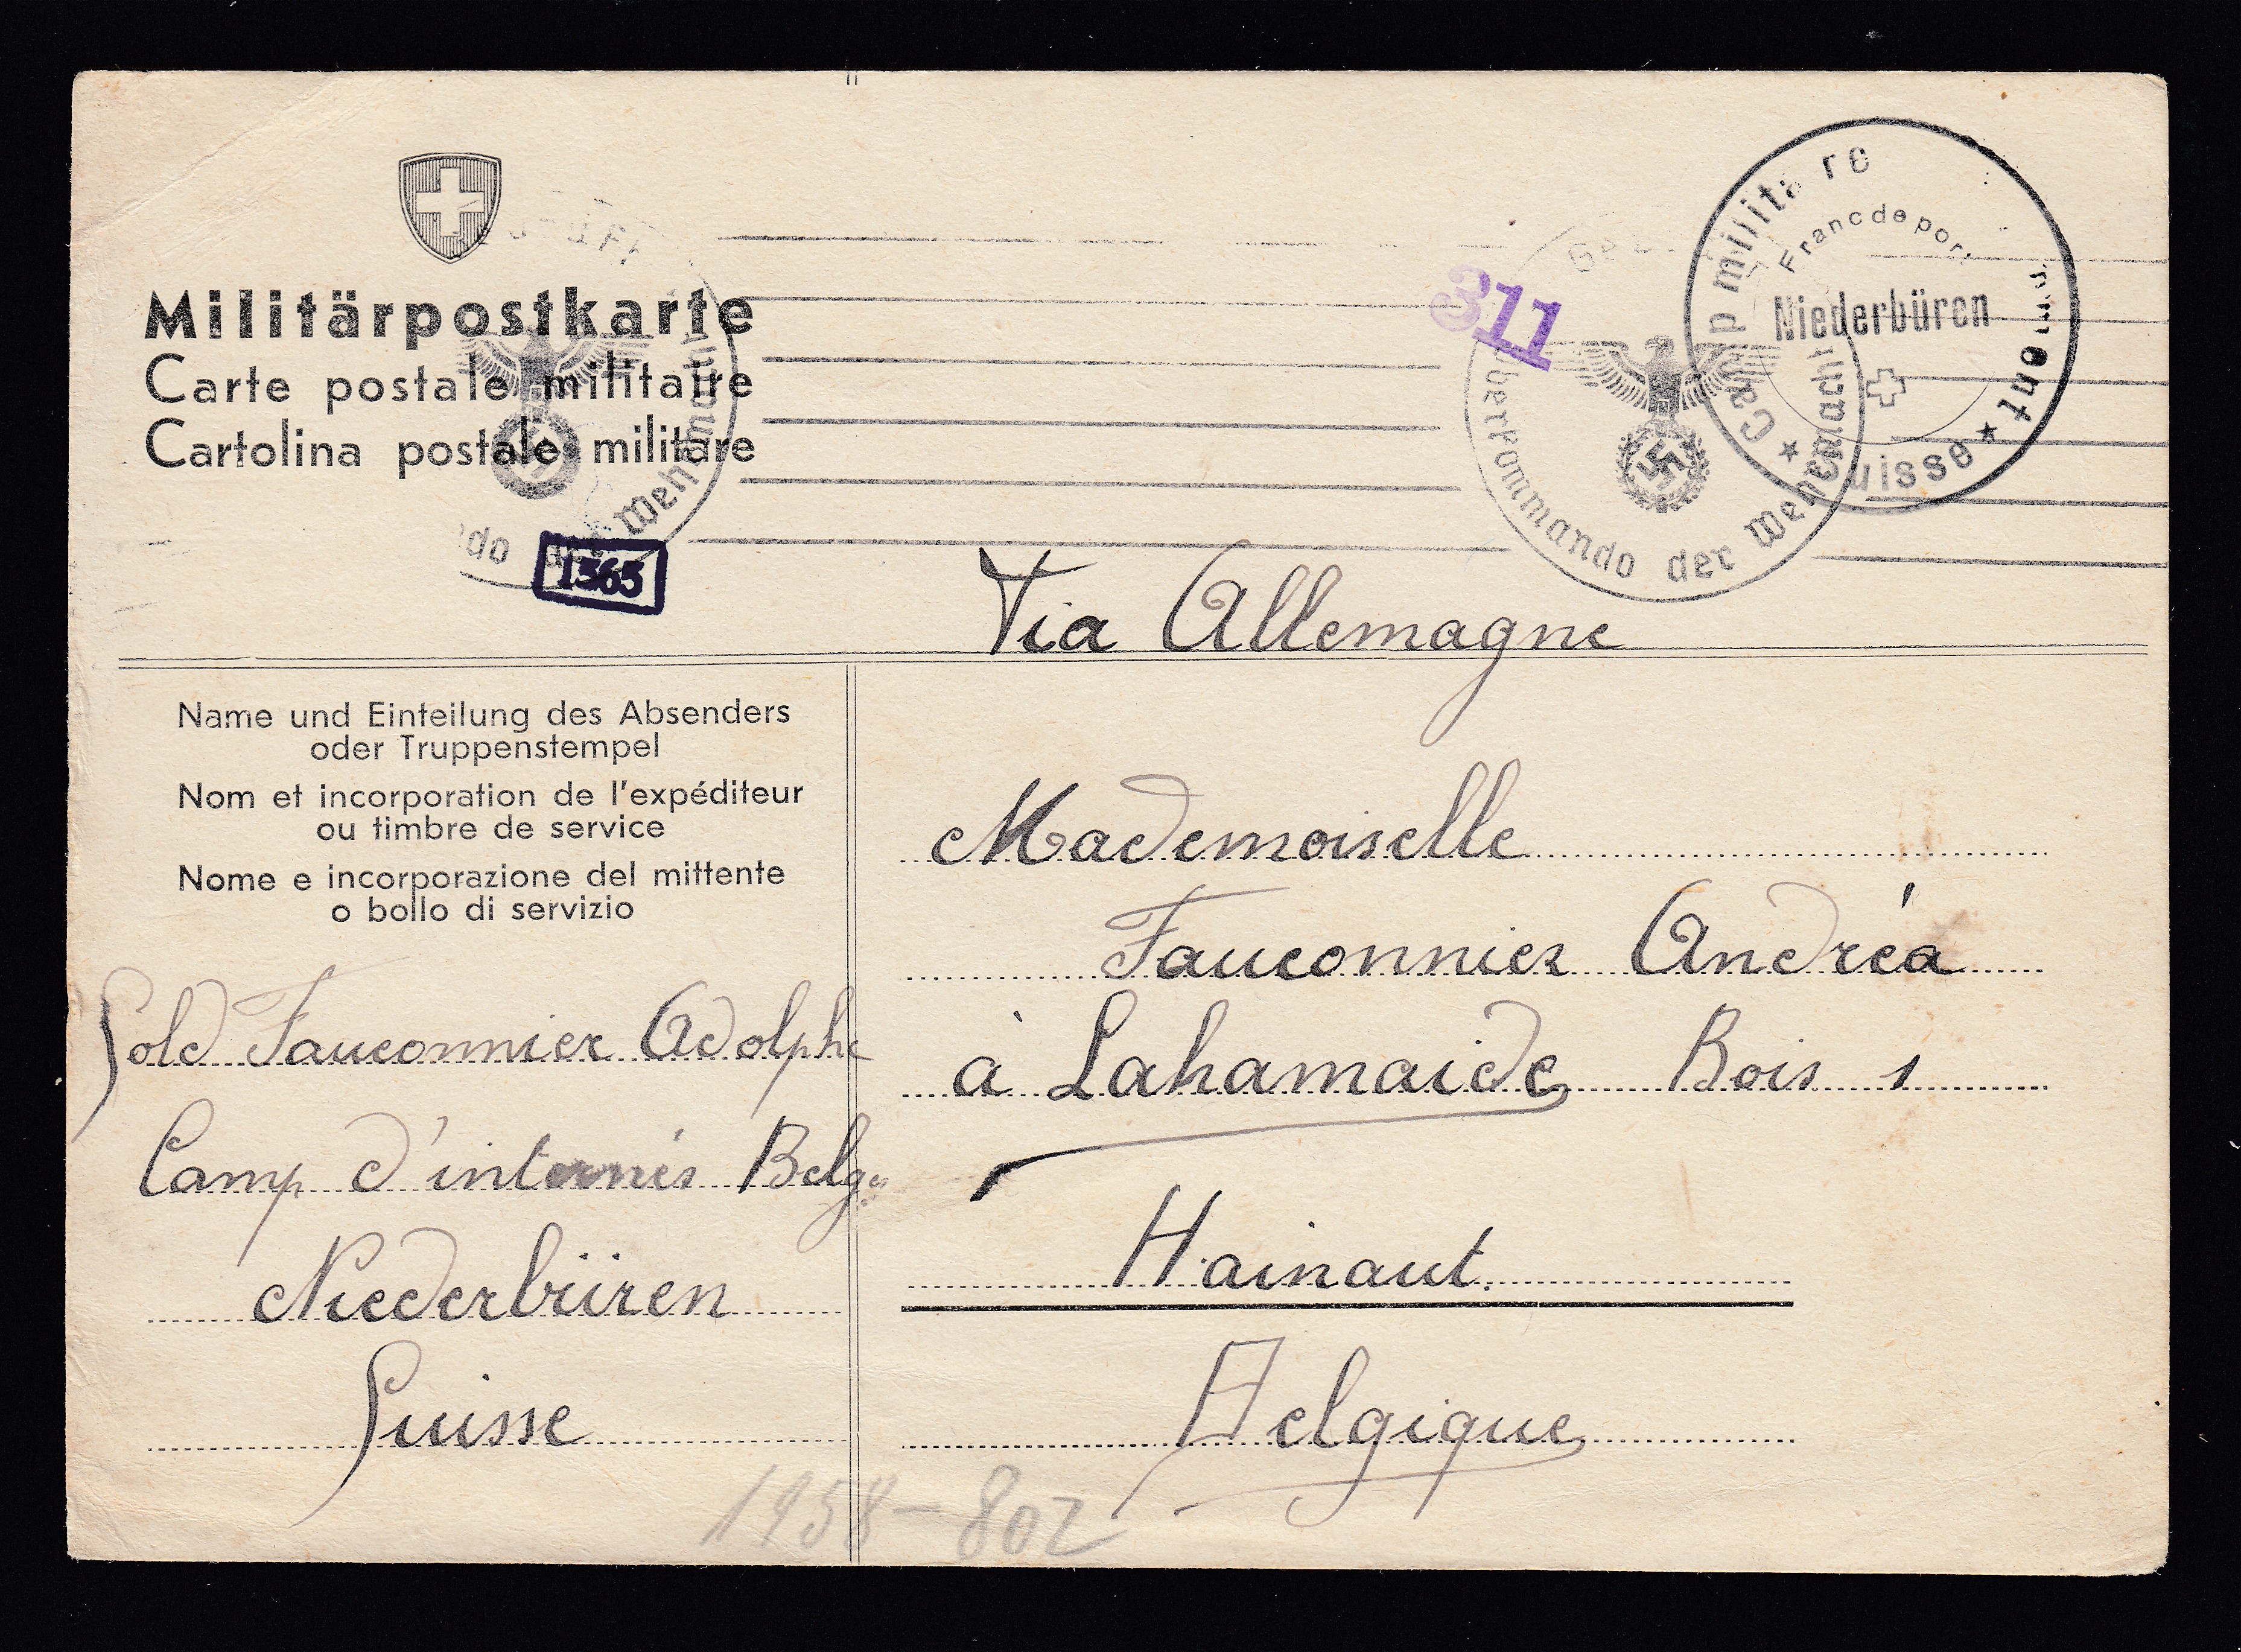 Militärpostkarte
Carte postale militaire
Cartolina postale militare
do der Wehrmacht
1565
311
Oberkommando der Wehrmacht
Camp militaire
Franc de port
Niederbüren
Suisse
Via Allemagne
Name und Einteilung des Absenders
oder Truppenstempel
Nom et incorporation de l'expéditeur
ou timbre de service
Nome e incorporazione del mittente
o bollo di servizio
Sold Fauconnier Adolphe
Camp d'internés Belges
Niederbüren
Suisse
Mademoiselle
Fauconnier Andréa
à Lahamaide Bois 1
Hainaut.
Belgique
1958-802